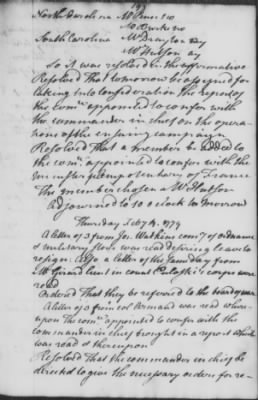 North Carolina Mr Penn no
Mr Burke no
South Carolina Mr Drayton ay
Mr Hutson ay
So it was resolved in the affirmative
Resolved That tomorrow be assigned for
taking into consideration the report of
the comee appointed to confer with
the commander in chief on the opera
tions of the ensuing campaign
Resolved That a member be added to
the comee appointed to confer with the
minister plenipotentiary of France
The member chosen Mr Hutson
Adjourned to 10 o Clock to Morrow
Thursday Feby 4. 1779
A letter of 3 from Jos. Watkins comy of ordnance
& military stores was read desiring leave to
resign. Also a letter of the same day from
Mr Girard lieut in count Pulaski's corps were
read
Ordered That they be referred to the board of war
A letter of 3 from col Armand was read where
upon The comee appointed to confer with the
commander in chief brought in a report which
was read & thereupon
Resolved That the commander in chief be
directed to give the necessary orders for re-